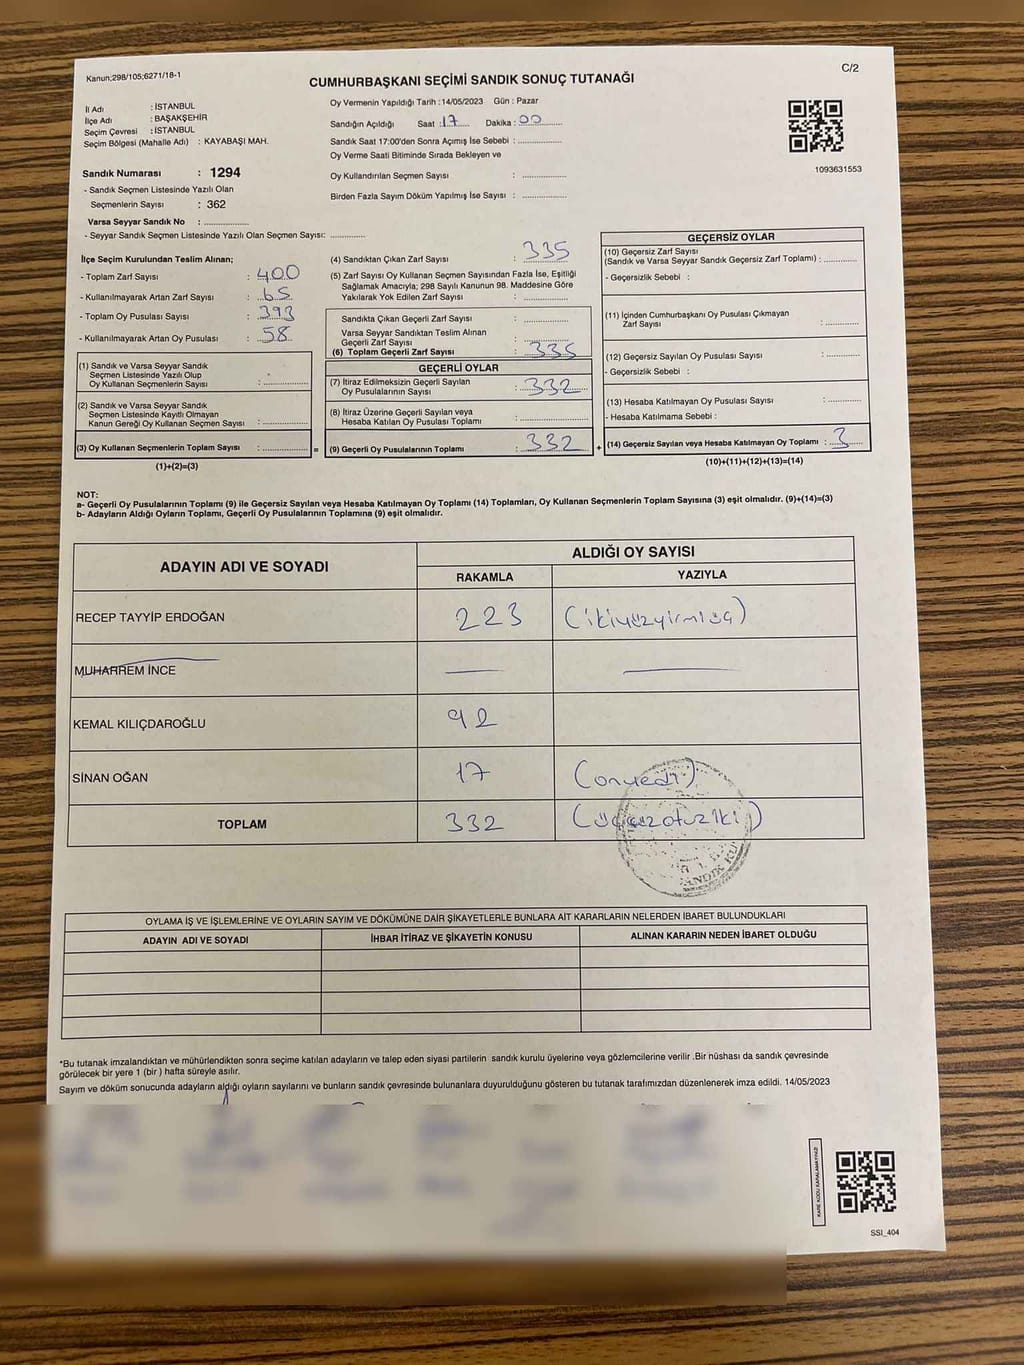 Kanun;298/105;6271/18-1
C/2
CUMHURBAŞKANI SEÇİMİ SANDIK SONUÇ TUTANAĞI
İl Adı : İSTANBUL
İlçe Adı : BAŞAKŞEHİR
Seçim Çevresi : İSTANBUL
Seçim Bölgesi (Mahalle Adı) : KAYABAŞI MAH.
Oy Vermenin Yapıldığı Tarih : 14/05/2023 Gün : Pazar
Sandığın Açıldığı Saat : 17 Dakika : 00
Sandık Saat 17:00'den Sonra Açımış İse Sebebi :
Oy Verme Saati Bitiminde Sırada Bekleyen ve
Oy Kullandırılan Seçmen Sayısı :
Birden Fazla Sayım Döküm Yapılmış İse Sayısı :
1093631553
Sandık Numarası : 1294
- Sandık Seçmen Listesinde Yazılı Olan
Seçmenlerin Sayısı : 362
Varsa Seyyar Sandık No :
- Seyyar Sandık Seçmen Listesinde Yazılı Olan Seçmen Sayısı:
İlçe Seçim Kurulundan Teslim Alınan;
- Toplam Zarf Sayısı : 400
- Kullanılmayarak Artan Zarf Sayısı : 65
- Toplam Oy Pusulası Sayısı : 393
- Kullanılmayarak Artan Oy Pusulası : 58
(1) Sandık ve Varsa Seyyar Sandık
Seçmen Listesinde Yazılı Olup
Oy Kullanan Seçmenlerin Sayısı :
(2) Sandık ve Varsa Seyyar Sandık
Seçmen Listesinde Kayıtlı Olmayan
Kanun Gereği Oy Kullanan Seçmen Sayısı :
(3) Oy Kullanan Seçmenlerin Toplam Sayısı :
(1)+(2)=(3)
(4) Sandıktan Çıkan Zarf Sayısı : 335
(5) Zarf Sayısı Oy Kullanan Seçmen Sayısından Fazla İse, Eşitliği
Sağlamak Amacıyla; 298 Sayılı Kanunun 98. Maddesine Göre
Yakılarak Yok Edilen Zarf Sayısı :
Sandıkta Çıkan Geçerli Zarf Sayısı :
Varsa Seyyar Sandıktan Teslim Alınan
Geçerli Zarf Sayısı :
(6) Toplam Geçerli Zarf Sayısı : 335
GEÇERLİ OYLAR
(7) İtiraz Edilmeksizin Geçerli Sayılan
Oy Pusulasının Sayısı : 332
(8) İtiraz Üzerine Geçerli Sayılan veya
Hesaba Katılan Oy Pusulası Toplamı :
= (9) Geçerli Oy Pusulalarının Toplamı : 332
GEÇERSİZ OYLAR
(10) Geçersiz Zarf Sayısı
(Sandık ve Varsa Seyyar Sandık Geçersiz Zarf Toplamı) :
- Geçersizlik Sebebi :
(11) İçinden Cumhurbaşkanı Oy Pusulası Çıkmayan
Zarf Sayısı :
(12) Geçersiz Sayılan Oy Pusulası Sayısı :
- Geçersizlik Sebebi :
(13) Hesaba Katılmayan Oy Pusulası Sayısı :
- Hesaba Katılmama Sebebi :
+ (14) Geçersiz Sayılan veya Hesaba Katılmayan Oy Toplamı : 3
(10)+(11)+(12)+(13)=(14)
NOT:
a- Geçerli Oy Pusulalarının Toplamı (9) ile Geçersiz Sayılan veya Hesaba Katılmayan Oy Toplamı (14) Toplamları, Oy Kullanan Seçmenlerin Toplam Sayısına (3) eşit olmalıdır. (9)+(14)=(3)
b- Adayların Aldığı Oyların Toplamı, Geçerli Oy Pusulalarının Toplamına (9) eşit olmalıdır.
ADAYIN ADI VE SOYADI
ALDIĞI OY SAYISI
RAKAMLA YAZIYLA
RECEP TAYYİP ERDOĞAN 223 (ikiyüzyirmiüç)
MUHARREM İNCE — —
KEMAL KILIÇDAROĞLU 92
SİNAN OĞAN 17 (onyedi)
TOPLAM 332 (üçyüzotuziki)
OYLAMA İŞ VE İŞLEMLERİNE VE OYLARIN SAYIM VE DÖKÜMÜNE DAİR ŞİKAYETLERLE BUNLARA AİT KARARLARIN NELERDEN İBARET BULUNDUKLARI
ADAYIN ADI VE SOYADI İHBAR İTİRAZ VE ŞİKAYETİN KONUSU ALINAN KARARIN NEDEN İBARET OLDUĞU
*Bu tutanak imzalandıktan ve mühürlendikten sonra seçime katılan adayların ve talep eden siyasi partilerin sandık kurulu üyelerine veya gözlemcilerine verilir .Bir nüshası da sandık çevresinde
görülecek bir yere 1 (bir ) hafta süreyle asılır.
Sayım ve döküm sonucunda adayların aldığı oyların sayılarını ve bunların sandık çevresinde bulunanlara duyurulduğunu gösteren bu tutanak tarafımızdan düzenlenerek imza edildi. 14/05/2023
KARE KODU KARALAMAYINIZ!
SSI_404